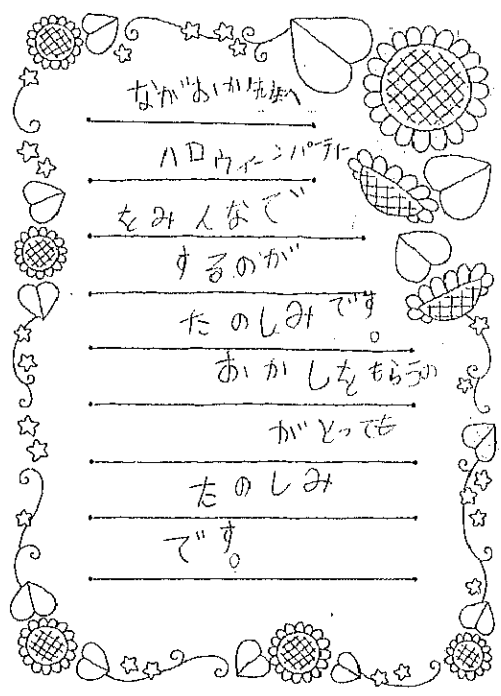 ながおか先生へ
ハロウィーンパーティー
をみんなで
するのが
たのしみです。
おかしをもらうの
がとっても
たのしみ
です。